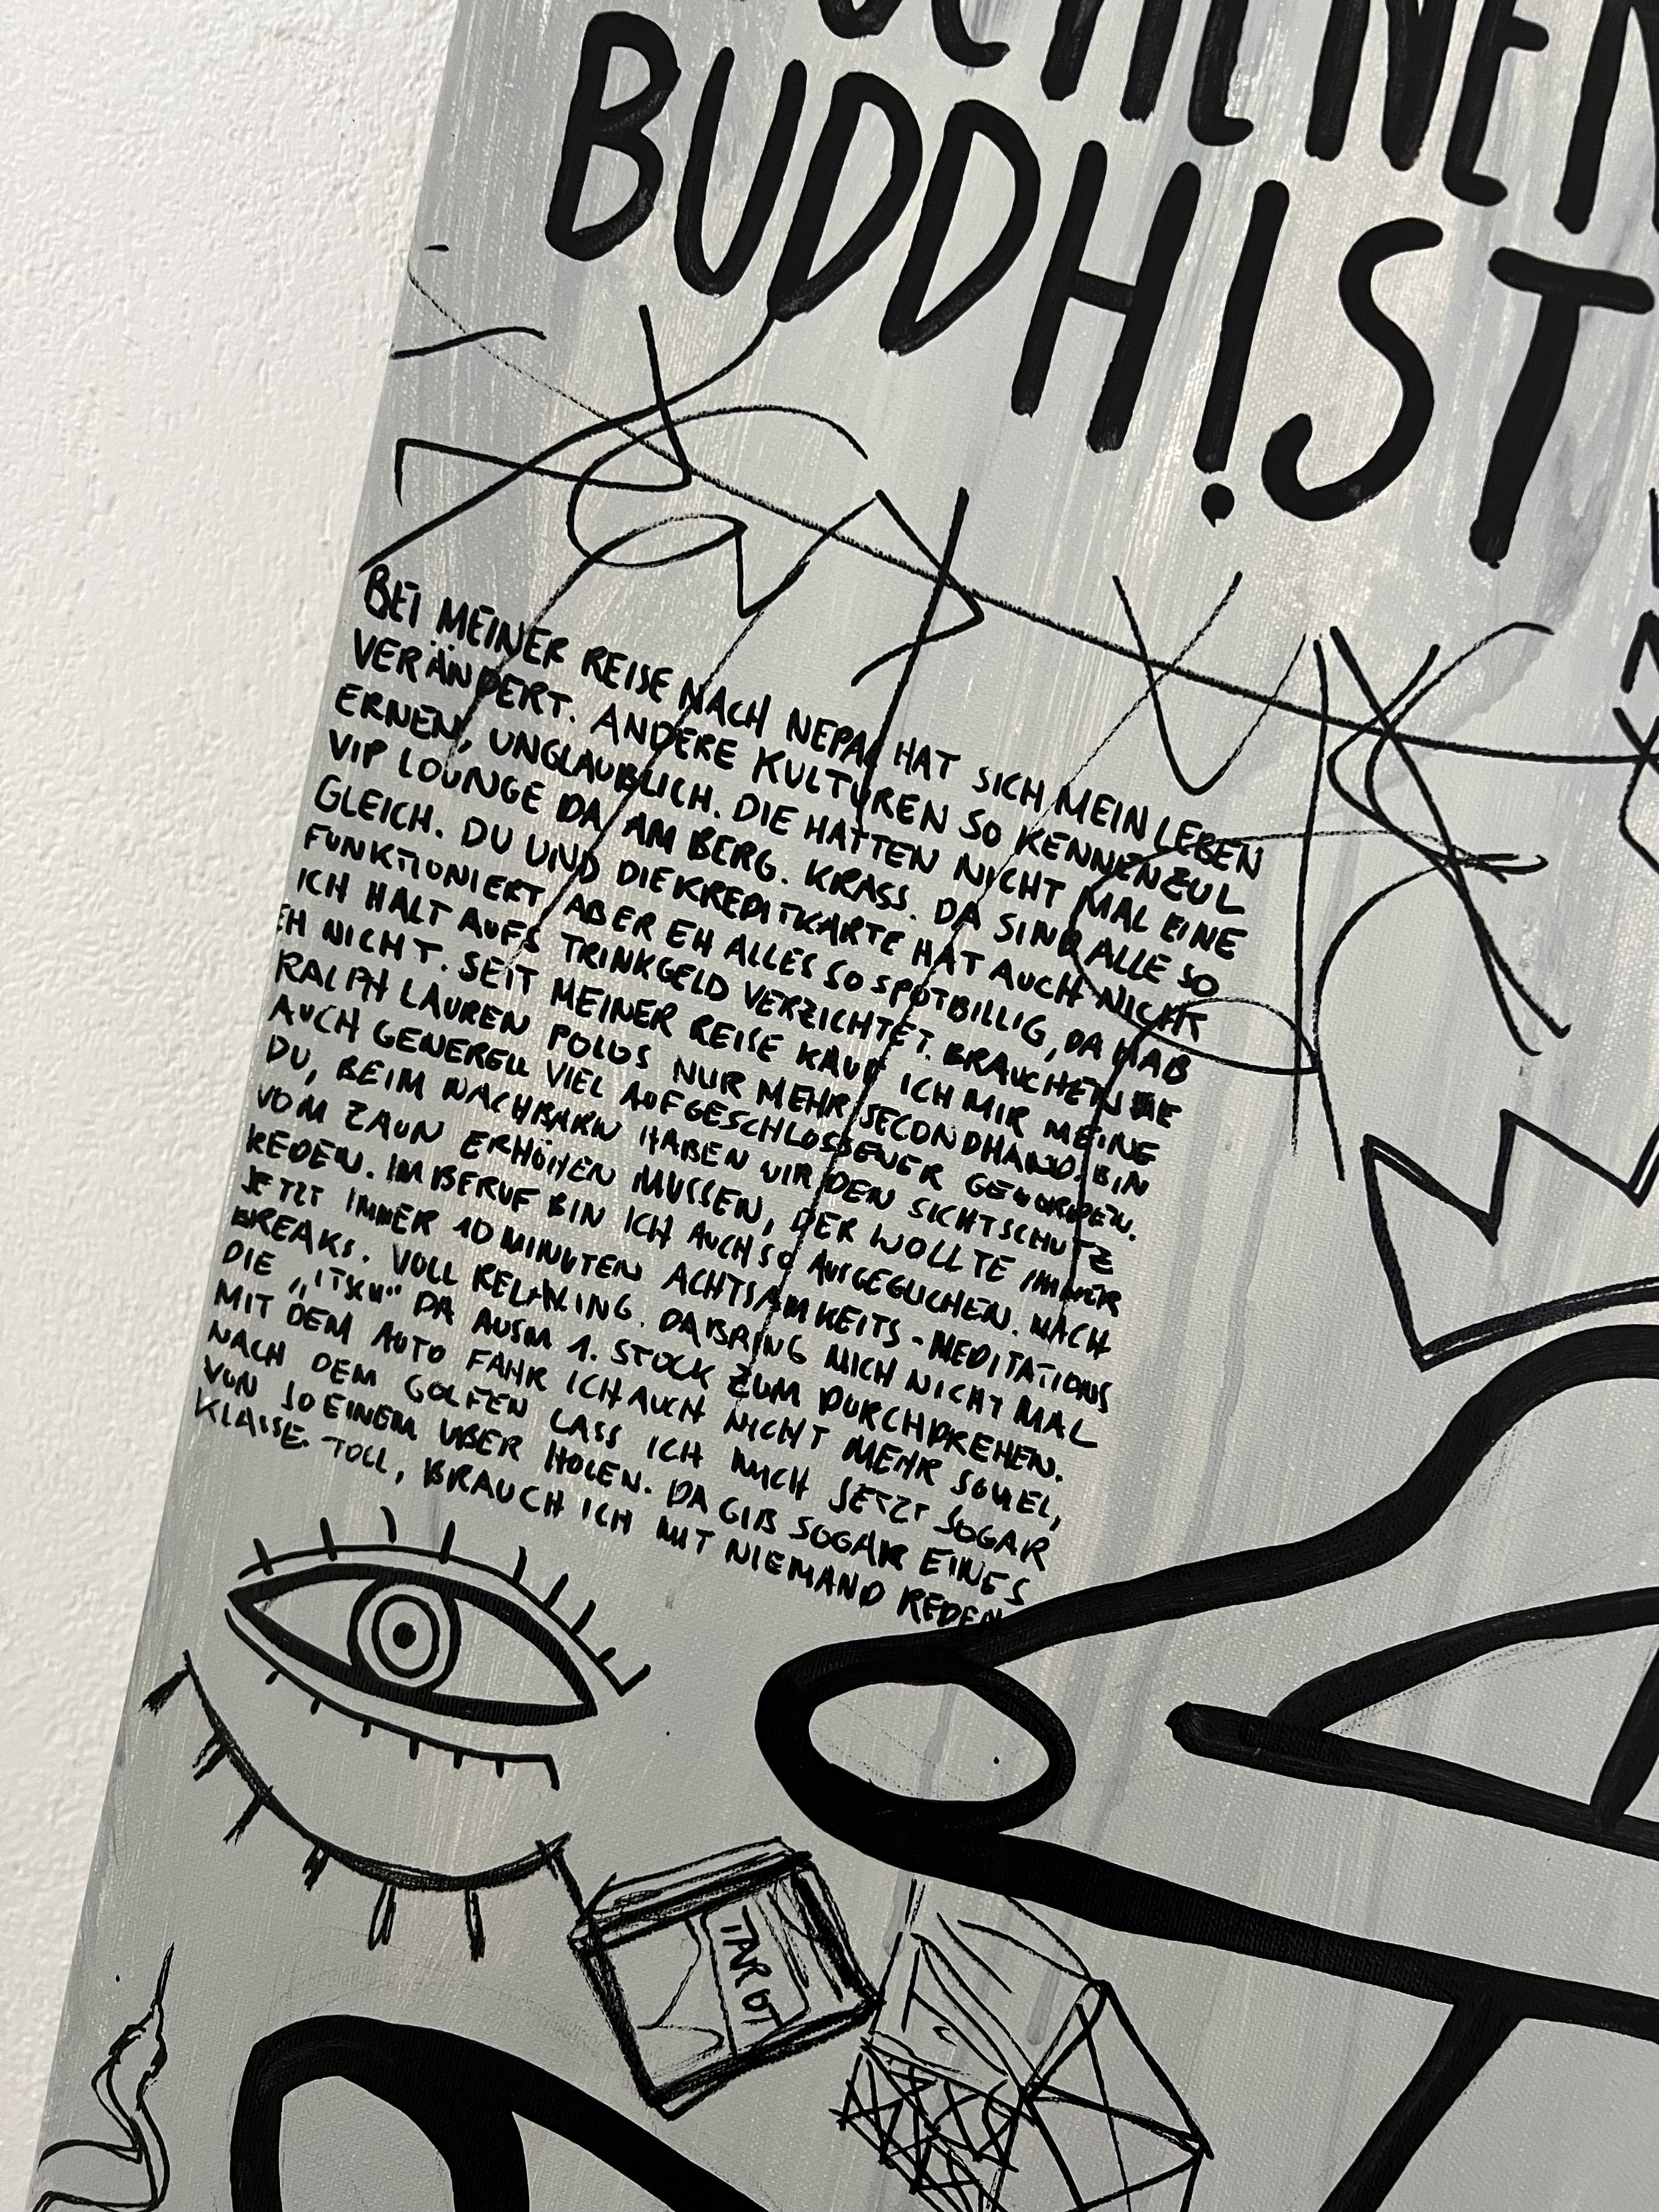 BUDDH!ST
BEI MEINER REISE NACH NEPAL HAT SICH MEIN LEBEN
VERÄNDERT. ANDERE KULTUREN SO KENNENZUL
ERNEN, UNGLAUBLICH. DIE HATTEN NICHT MAL EINE
VIP LOUNGE DA AM BERG. KRASS. DA SIND ALLE SO
GLEICH. DU UND DIE KREDITKARTE HAT AUCH NICHT
FUNKTIONIERT ABER EH ALLES SO SPOTBILLIG, DA HAB
ICH HALT AUFS TRINKGELD VERZICHTET. BRAUCHEN DIE
EH NICHT. SEIT MEINER REISE KAUF ICH MIR MEINE
RALPH LAUREN POLOS NUR MEHR SECONDHAND. BIN
AUCH GENERELL VIEL AUFGESCHLOSSENER GEWORDEN.
DU, BEIM NACHBARN HABEN WIR DEN SICHTSCHUTZ
VOM ZAUN ERHÖHEN MÜSSEN, DER WOLLTE IMMER
REDEN. IM BERUF BIN ICH AUCH SO AUSGEGLICHEN. MACH
JETZT IMMER 10 MINUTEN ACHTSAMKEITS-MEDITATIONS
BREAKS. VOLL RELAXING. DA BRING MICH NICHT MAL
DIE „ITSCH“ DA AUSM 1. STOCK ZUM DURCHDREHEN.
MIT DEM AUTO FAHR ICH AUCH NICHT MEHR SOVIEL,
NACH DEM GOLFEN LASS ICH MICH JETZT SOGAR
VON SO EINEM UBER HOLEN. DA GIBS SOGAR EINES
KLASSE. TOLL, BRAUCH ICH MIT NIEMAND REDEN
TAROT